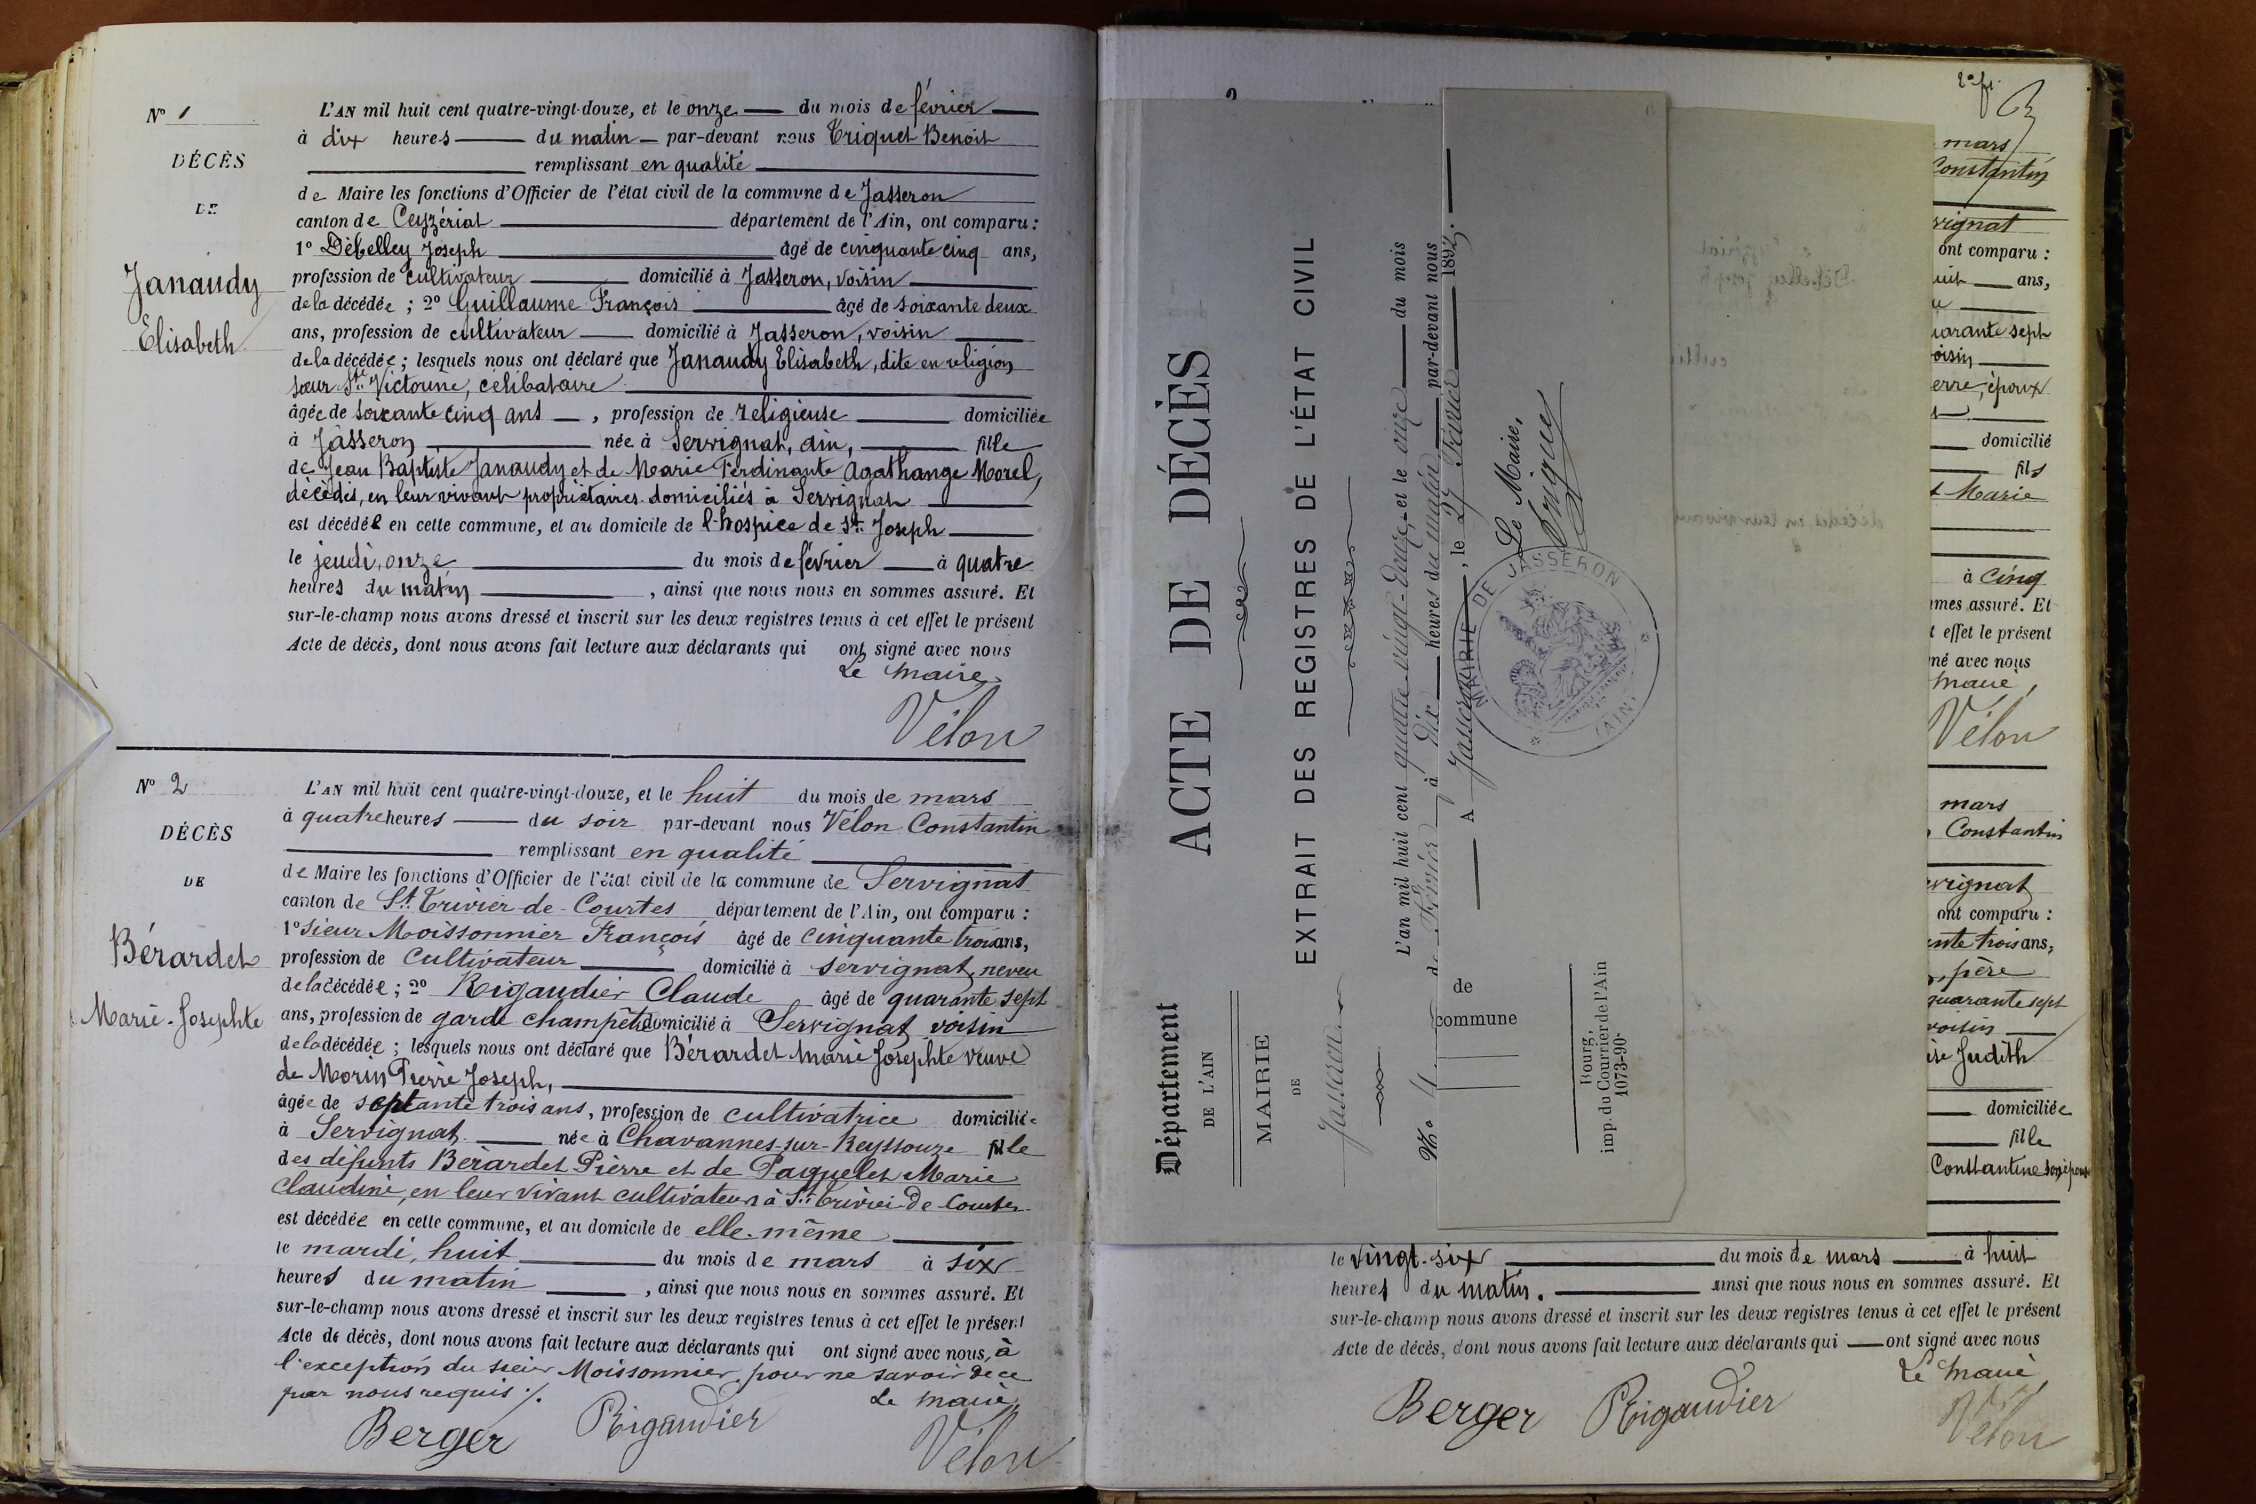 N° 1
DÉCÈS
DE
Janaudy
Elisabeth
L'AN mil huit cent quatre-vingt-douze, et le onze du mois de février
à dix heures du matin par-devant nous Triquet Benoit
remplissant en qualité
de Maire les fonctions d'Officier de l'état civil de la commune de Jasseron
canton de Ceyzériat département de l'Ain, ont comparu :
1° Débelley Joseph âgé de cinquante cinq ans,
profession de cultivateur domicilié à Jasseron, voisin
de la décédée ; 2° Guillaume François âgé de soixante deux
ans, profession de cultivateur domicilié à Jasseron, voisin
de la décédée ; lesquels nous ont déclaré que Janaudy Elisabeth, dite en religion
sœur Ste Victorine, célibataire
âgée de soixante cinq ans, profession de religieuse domiciliée
à Jasseron née à Servignat, ain, fille
de Jean Baptiste Janaudy et de Marie Ferdinante Agathange Morel,
décédés, en leur vivant propriétaires domiciliés à Servignat
est décédée en cette commune, et au domicile de l'hospice de St Joseph
le jeudi, onze du mois de février à quatre
heures du matin, ainsi que nous nous en sommes assuré. Et
sur-le-champ nous avons dressé et inscrit sur les deux registres tenus à cet effet le présent
Acte de décès, dont nous avons fait lecture aux déclarants qui ont signé avec nous
Le Maire,
Vélon
N° 2
DÉCÈS
DE
Bérardet
Marie-Josephte
L'AN mil huit cent quatre-vingt-douze, et le huit du mois de mars
à quatre heures du soir par-devant nous Vélon Constantin
remplissant en qualité
de Maire les fonctions d'Officier de l'état civil de la commune de Servignat
canton de St Trivier-de-Courtes département de l'Ain, ont comparu :
1° sieur Moissonnier François âgé de cinquante trois ans,
profession de cultivateur domicilié à Servignat, neveu
de la décédée ; 2° Rigaudier Claude âgé de quarante sept
ans, profession de garde champêtre domicilié à Servignat voisin
de la décédée ; lesquels nous ont déclaré que Bérardet Marie Josephte veuve
de Morin Pierre Joseph,
âgée de septante trois ans, profession de cultivatrice domiciliée
à Servignat née à Chavannes-sur-Reyssouze fille
des défunts Bérardet Pierre et de Paquelet Marie
Claudine, en leur vivant cultivateurs à St Trivier-de-Courtes
est décédée en cette commune, et au domicile de elle-même
le mardi, huit du mois de mars à six
heures du matin, ainsi que nous nous en sommes assuré. Et
sur-le-champ nous avons dressé et inscrit sur les deux registres tenus à cet effet le présent
Acte de décès, dont nous avons fait lecture aux déclarants qui ont signé avec nous, à
l'exception du sieur Moissonnier pour ne savoir de ce
par nous requis ./.
Le Maire,
Berger Rigaudier Vélon
Département
DE L'AIN
MAIRIE
DE
Jasseron
N° 4
ACTE DE DÉCÈS
EXTRAIT DES REGISTRES DE L'ÉTAT CIVIL
L'an mil huit cent quatre-vingt-douze, et le onze du mois
de Février à dix heures du matin par-devant nous
A Jasseron, le 27 Février 1892.
Le Maire,
Triquet
MAIRIE DE JASSERON
(AIN)
de
commune
Bourg,
imp. du Courrier de l'Ain
1073-90-
mars
Constantin
ont comparu :
ans,
quarante sept
voisin
époux
domicilié
fils
Marie
à cinq
effet le présent
avec nous
Maire,
Vélon
mars
Constantin
ont comparu :
trois ans,
père
quarante sept
voisin
Judith
domiciliée
fille
Constantine son épouse
le vingt-six du mois de mars à huit
heures du matin. ainsi que nous nous en sommes assuré. Et
sur-le-champ nous avons dressé et inscrit sur les deux registres tenus à cet effet le présent
Acte de décès, dont nous avons fait lecture aux déclarants qui ont signé avec nous
Le Maire
Berger Rigaudier Vélon